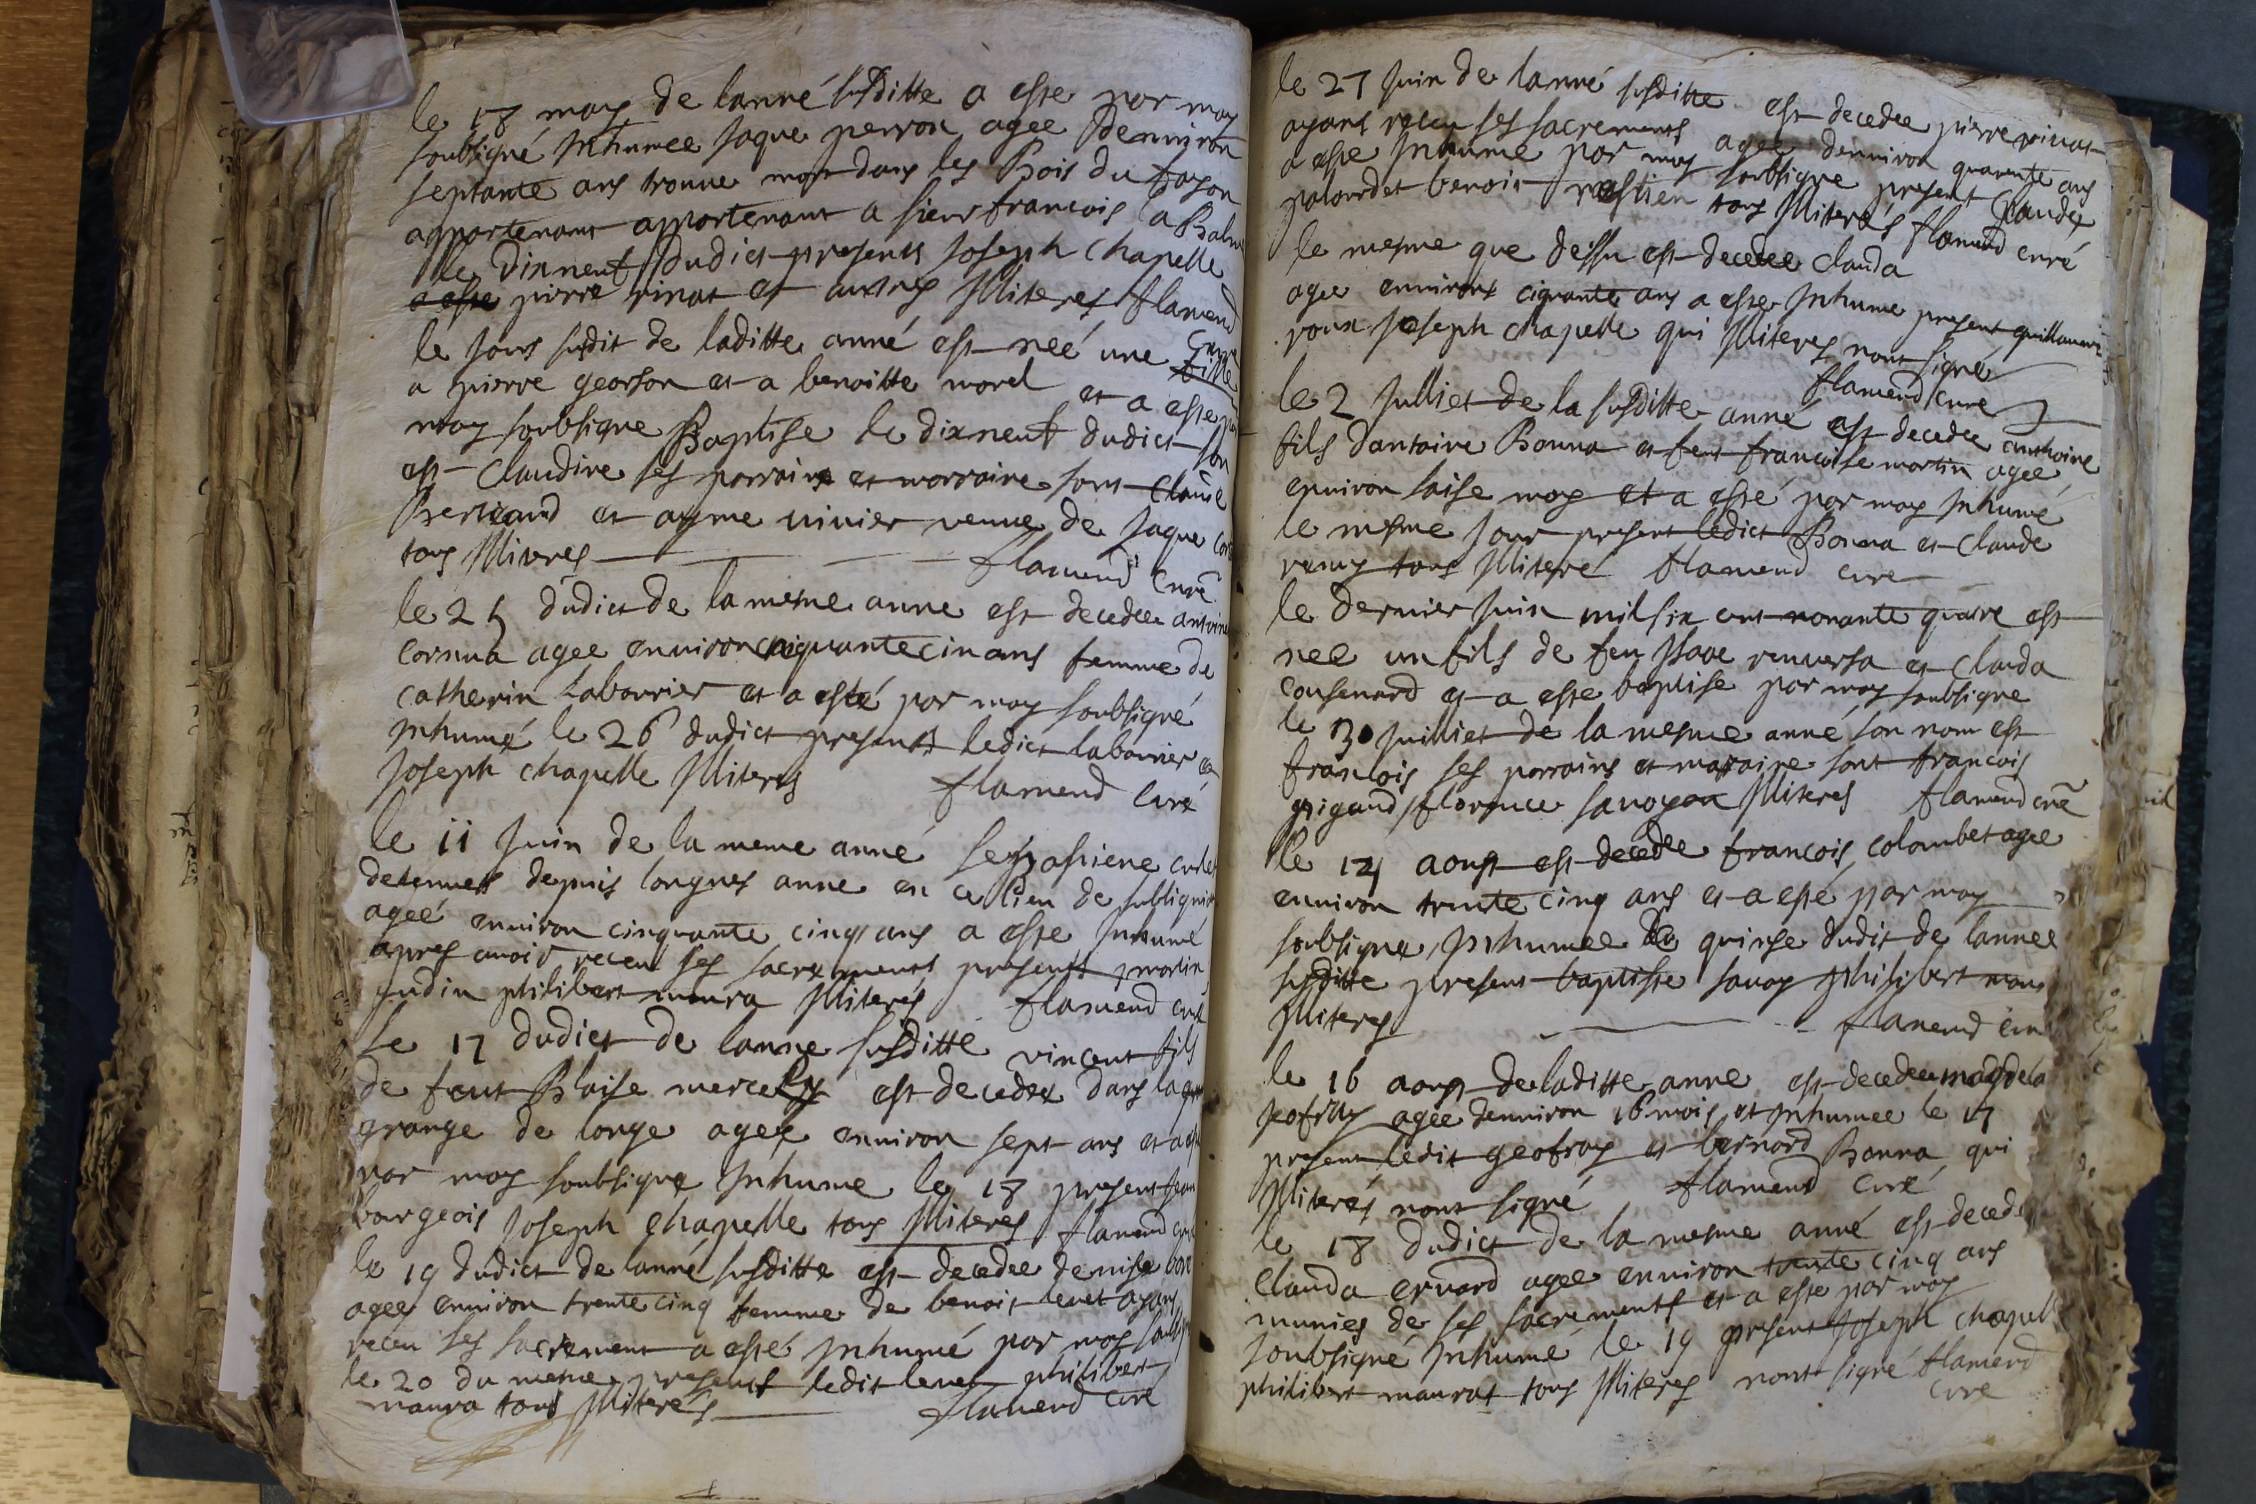 le 18 may de lanné susditte a este par moy
soubsigné Inhumee Jaque perron agee denuiron
septante ans trouue mort dans les Bois du
appartenant appartenant a sieur francois la Balm
le Dixneuf dudict presents Joseph chapelle
a este pierre pinat et autres Illiteres flamend
Cure
le Jour susdit de laditte anné est neé une fille
a pierre georson et a benoitte morel et a este par
moy soubsigne Baptise le dixneuf dudict son
est Claudine ses parrains et marraine sont Claude
Bertrand et ayme viuier veuue de Jaque
tous Illiteres flamend Curé
le 25 dudict de la mesme anne est decedee antoine
Cornua agee enuiron cinquante cin ans femme de
Catherin Labourier et a esté par moy soubsigné
Inhumé le 26 dudict presents ledict labourier et
Joseph chapelle Illiteres flamend Curé
le ii Juin de la meme anné
detenues depuis longues anne en ce lieu de
ageé enuiron cinquante cinq ans a este Inhumé
apres auoir receu ses sacrements presents martin
gudin philibert maura Illiterés flamend curé
le 17 dudict de lanne susditte vincent fils
de feut Blaise est decedee dans la
grange de longe agee enuiron sept ans et a este
par moy soubsigne Inhume le 18 present Jean
bourgeois Joseph chapelle tous Illiteres flamend cure
le 19 dudict de lanné susditte est decedee denise
agee enuiron trente cinq femme de benoit leuet ayant
receu ses sacrement a esté Inhumé par moy soubsigne
le 20 du mesme presents ledit leuet philibert
maura tous Illiterés flamend curé
le 27 Juin de lanné susditte est decedee pierre pinat
ayant receu ses sacrements agee denuiron quarente ans
a este Inhume par moy soubsigne present Claude
palourdet benoit tous Illiterés flamend curé
le mesme que dessu est decedee clauda
agee enuiron ciquante ans a este Inhume present guillaume
roux Joseph chapelle qui Illiteres nont signé
flamend cure
le 2 Julliet de la susditte anné est decedee anthoine
fils dantoine Bonna et feut francoise martin agee
enuiron saise moy et a esté par moy Inhumé
le mesme Jour present ledict Bonna et Claude
remy tous Illiteré flamend cure
le dernier Juin mil six cent nonante quatre est
nee un fils de feu Isaac renuersa et Clauda
cousenard et a este baptise par moy soubsigne
le 30 Juilliet de la mesme anné son nom est
francois ses parrains et marraine sont francois
grigaud florence sauoyan Illiteres flamend curé
le 14 aoust est decedee francois colombet agee
enuiron trente cinq ans et a esté par moy
soubsigne Inhumee le quinse dudit de lannee
susditte present baptiste sauoy philibert maur
Illiteres flamend cure
le 16 aoust de laditte anne est decedee magdela
Jeofray agee denuiron 16 mois et Inhumee le 17
present ledit geofray et bernard Bonna qui
Illiterés nont signé flamend curé
le 18 dudict de la mesme anné est decede
Clauda eruard agee enuiron trente cinq ans
munies de ses sacrements et a este par moy
soubsigné Inhumé le 19 present Joseph chapel
philibert maurat tous Illiteres nont signé flamend
cure